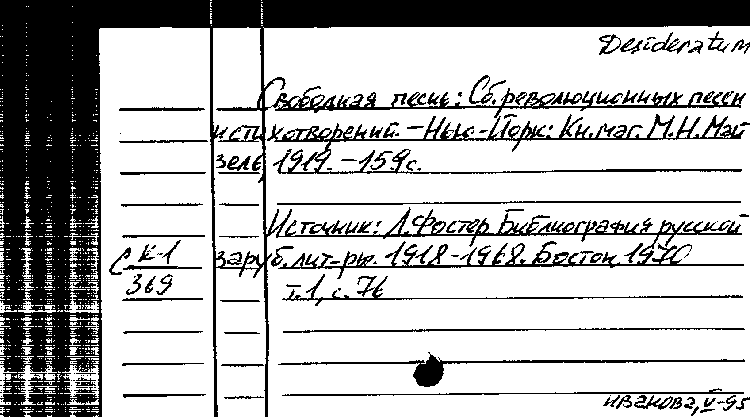 Desideratum
Свободная песнь: Сб. революционных песен
и стихотворений. – Нью-Йорк: Кн. маг. М.Н. Май
зеля, 1919. – 159 с.
Источник: Л. Фостер Библиография русской
заруб. лит-ры. 1918-1968. Бостон, 1970
т. 1, с. 76
С К-1
369
Иванова, V-95